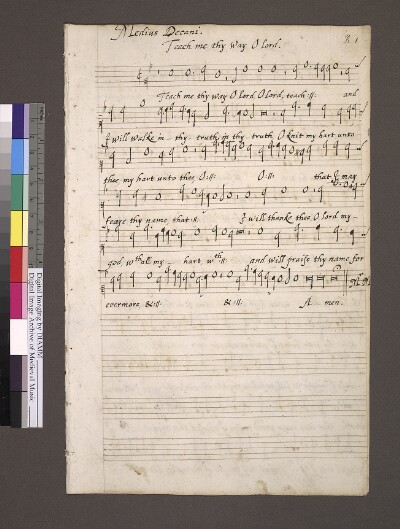 Medius Decani.
R 1
Teach me thy way O lord.
Teach me thy way O lord, O lord, teach :||: and
I will walke in thy truth in thy truth O knit my hart unto
thee my hart unto thee O :||: O :||: that I may
feare thy name that :||: I will thanke thee O lord my
god, wth all my hart wth :||: and will praise thy name for
evermore &:||: &:||: A- men.
Digital Imaging by DIAMM
Digital Image Archive of Medieval Music